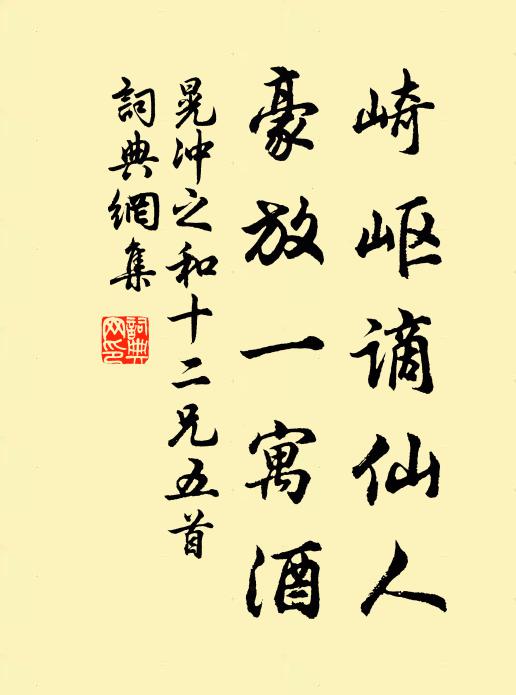 崎岖謫仙人
豪放一寓酒
晁冲之和十二兄五首
詞典網集
詞典网印